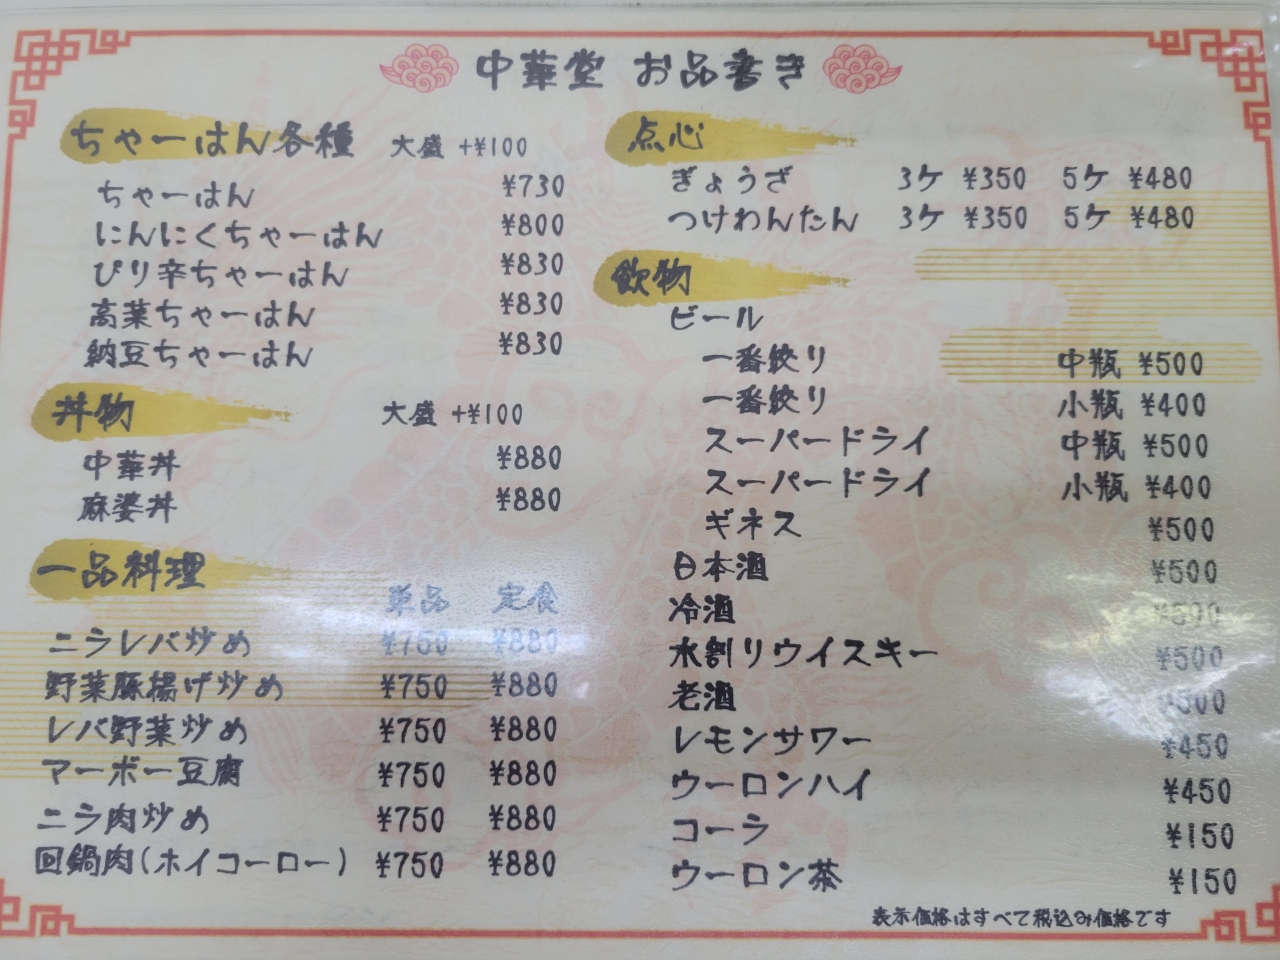 中華堂 お品書き
ちゃーはん各種 大盛 +¥100
ちゃーはん ¥730
にんにくちゃーはん ¥800
ぴり辛ちゃーはん ¥830
高菜ちゃーはん ¥830
納豆ちゃーはん ¥830
丼物 大盛 +¥100
中華丼 ¥880
麻婆丼 ¥880
一品料理
単品 定食
ニラレバ炒め ¥750 ¥880
野菜豚揚げ炒め ¥750 ¥880
レバ野菜炒め ¥750 ¥880
マーボー豆腐 ¥750 ¥880
ニラ肉炒め ¥750 ¥880
回鍋肉(ホイコーロー) ¥750 ¥880
点心
ぎょうざ 3ケ ¥350 5ケ ¥480
つけわんたん 3ケ ¥350 5ケ ¥480
飲物
ビール
一番絞り 中瓶 ¥500
一番絞り 小瓶 ¥400
スーパードライ 中瓶 ¥500
スーパードライ 小瓶 ¥400
ギネス ¥500
日本酒 ¥500
冷酒 ¥500
水割りウイスキー ¥500
老酒 ¥500
レモンサワー ¥450
ウーロンハイ ¥450
コーラ ¥150
ウーロン茶 ¥150
表示価格はすべて税込み価格です